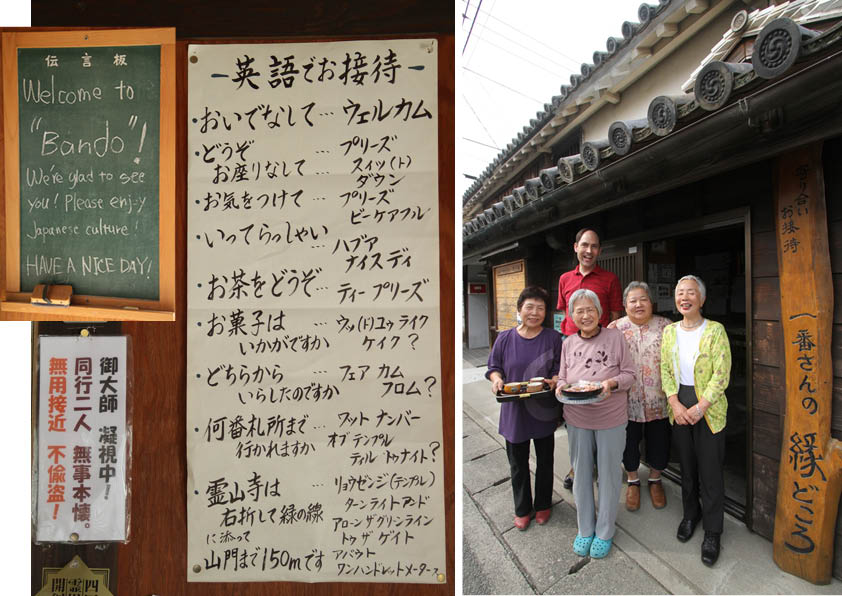 伝言板
Welcome to
"Bando"!
We're glad to see
you! Please enjoy
Japanese culture!
HAVE A NICE DAY!
御大師 凝視中。
同行二人 無事本懐。
無用接近 不偸盗!
－英語でお接待－
・おいでなして…ウェルカム
・どうぞ … プリーズ
お座りなして スィッ(ト)
ダウン
・お気をつけて … プリーズ
ビーケアフル
・いってらっしゃい
… ハブア
ナイスディ
・お茶をどうぞ … ティープリーズ
・お菓子は … ウッ(ド)ユゥライク
いかがですか ケイク?
・どちらから … フェア カム
いらしたのですか フロム?
・何番札所まで … ワット ナンバー
行かれますか オブテンプル
ティル トゥナイト?
・霊山寺は リョウゼンジ(テンプル)
右折して緑の線 ターンライトアンド
に添って アローンザグリーンライン
トゥ ザ ゲイト
山門まで150mです アバウト
ワンハンドレットメーター
寄り合い
お接待
一番さんの
縁どころ